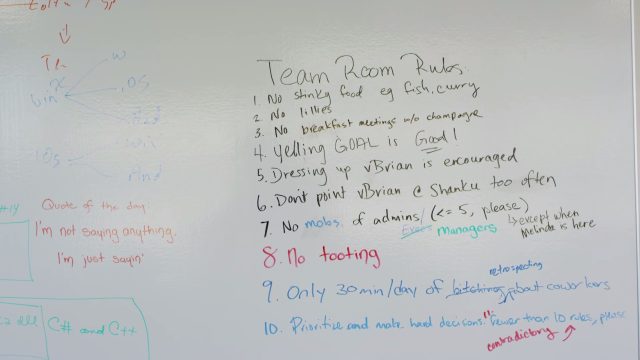 Team Room Rules.
1. No stinky food eg fish, curry
2. No lillies
3. No breakfast meetings w/o champagne
4. Yelling GOAL is Good!
5. Dressing up vBrian is encouraged
6. Dont point vBrian @ Shanku too often
7. No mobs of admins/ (<= 5, please)
Execs managers
↳ except when
Melinda is here
8. No tooting
retrospecting
9. Only 30 min/day of bitching about coworkers
10. Prioritize and make hard decisons. "Fewer than 10 rules, please
contradictory
Quote of the day:
I'm not saying anything,
I'm just sayin'
C# and C++
dll
#14
W
iOS
And
bin
iOS
Win
And